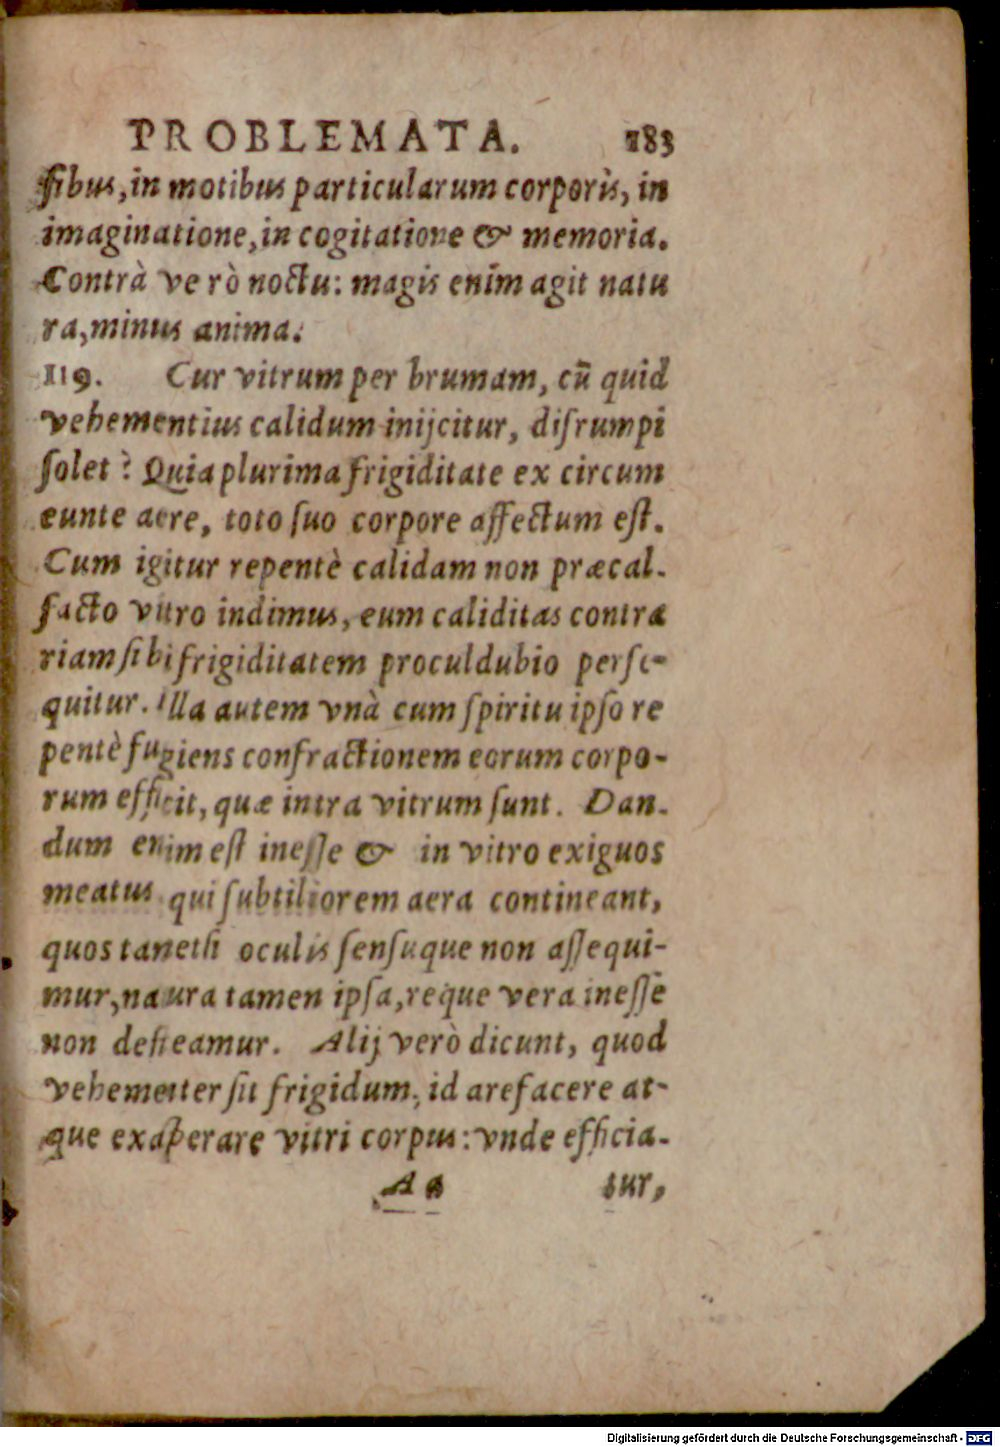 PROBLEMATA. 183
ſibus, in motibus particularum corporis, in
imaginatione, in cogitatione & memoria.
Contrà ve rò noctu: magis enim agit natu
ra, minus anima.
119. Cur vitrum per brumam, cū quid
vehementius calidum inijcitur, diſrumpi
ſolet? Quia plurima frigiditate ex circum
eunte aere, toto ſuo corpore affectum eſt.
Cum igitur repentè calidam non præcal-
facto vitro indimus, eum caliditas contra
riam ſibi frigiditatem proculdubio perſe-
quitur. Illa autem vnà cum ſpiritu ipſo re
pentè fugiens confractionem eorum corpo-
rum efficit, quæ intra vitrum ſunt. Dan-
dum enim eſt ineſſe & in vitro exiguos
meatus qui ſubtiliorem aera contineant,
quos tametſi oculis ſenſuque non aſſequi-
mur, natura tamen ipſa, reque vera ineſſe
non defieamur. Alij verò dicunt, quod
vehementer ſit frigidum, id arefacere at-
que exaſperare vitri corpus: vnde efficia-
Aa tur,
Digitalisierung gefördert durch die Deutsche Forschungsgemeinschaft - DFG